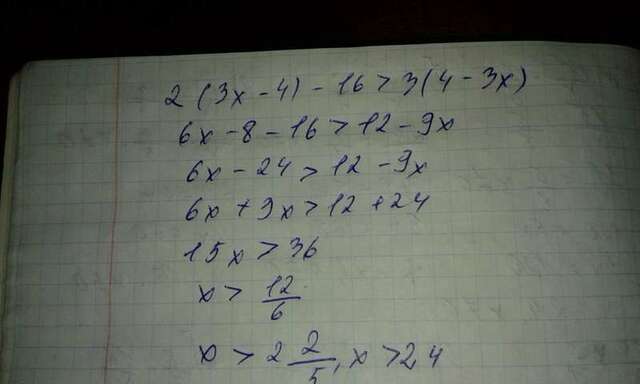 2 (3x - 4) - 16 > 3 (4 - 3x)
6x - 8 - 16 > 12 - 9x
6x - 24 > 12 - 9x
6x + 9x > 12 + 24
15x > 36
x > 12/6
x > 2 2/5, x > 2,4